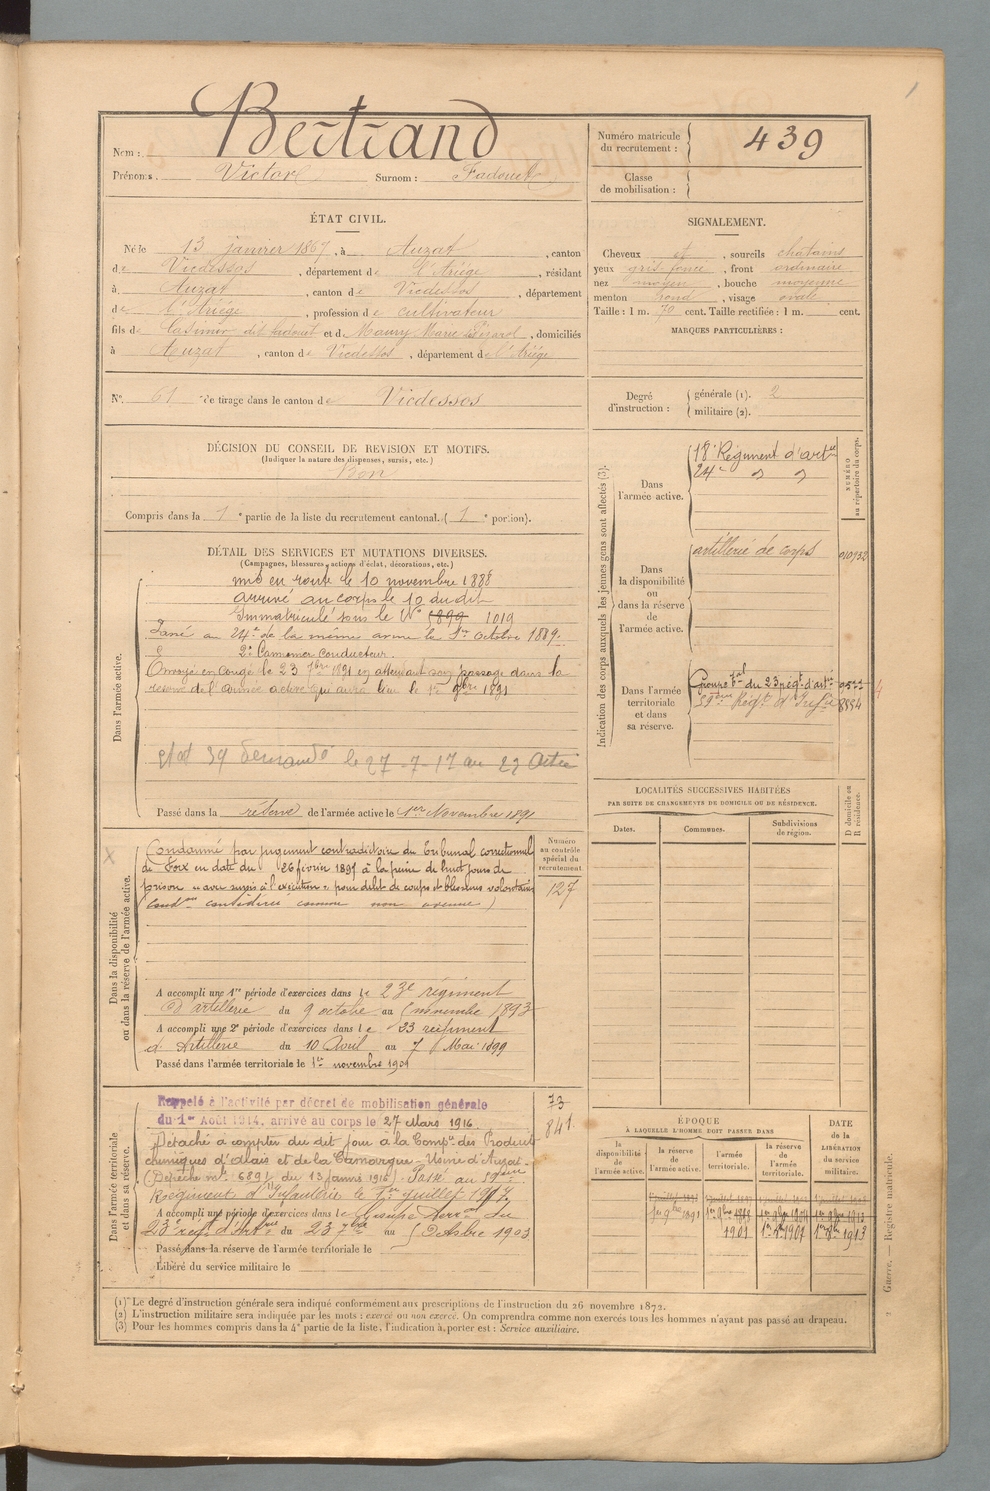 Bertrand
Nom :
Prénoms. Victor Surnom : Fadouet
Numéro matricule du recrutement : 439
Classe de mobilisation :
ÉTAT CIVIL.
Né le 13 janvier 1867, à Auzat, canton
de Vicdessos, département de l'Ariège, résidant
à Auzat, canton de Vicdessos, département
de l'Ariége, profession de cultivateur
fils de Casimir dit fadouet et de Maury Marie, domiciliés
à Auzat, canton de Vicdessos, département de l'Ariége
N° 61 de tirage dans le canton de Vicdessos
SIGNALEMENT.
Cheveux et, sourcils chatains
yeux gris foncé, front ordinaire
nez moyen, bouche moyenne
menton rond, visage ovale
Taille : 1 m. 70 cent. Taille rectifiée : 1 m. cent.
MARQUES PARTICULIÈRES :
Degré d'instruction : générale (1). 2
militaire (2).
DÉCISION DU CONSEIL DE REVISION ET MOTIFS.
(Indiquer la nature des dispenses, sursis, etc.)
Bon
Compris dans la 1e partie de la liste du recrutement cantonal. (1e portion).
DÉTAIL DES SERVICES ET MUTATIONS DIVERSES.
(Campagnes, blessures, actions d'éclat, décorations, etc.)
Dans l'armée active.
mis en route le 10 novembre 1888
arrivé au corps le 10 du dit
Immatriculé sous le N° 5899 1019
Passé au 24e de la même arme le 1er octobre 1889.
2e Canonnier conducteur.
Envoyé en congé le 23 7bre 1891 en attendant son passage dans la
réserve de l'armée active qui aura lieu le 1er 9bre 1891
etat 39 demandé le 27-7-17 au 23 Artie
Passé dans la réserve de l'armée active le 1er Novembre 1891
Dans la disponibilité ou dans la réserve de l'armée active.
Numéro au contrôle spécial du recrutement
127
Condamné par jugement contradictoire du Tribunal correctionnel
de Foix en date du 26 février 1897 à la peine de huit jours de
prison "avec sursis à l'exécution" pour délit de coups et blessures volontaires
(condon considérée comme non avenue)
A accompli une 1re période d'exercices dans le 23e régiment
d'artillerie du 9 octobre au 5 novembre 1893
A accompli une 2e période d'exercices dans le 23 régiment
d'Artillerie du 10 Avril au 7 Mai 1899
Passé dans l'armée territoriale le 1er novembre 1901
Dans l'armée territoriale et dans sa réserve.
73
841
Rappelé à l'activité par décret de mobilisation générale
du 1er Août 1914, arrivé au corps le 27 Mars 1916.
Détaché à compter du dit jour à la Compie des Produits
chimiques d'Alais et de la Camargue - Usine d'Auzat -
(Dépêche n° 6891 du 13 janv 1916) Passé au 59ème
Régiment d'Infanterie le 1er juillet 1917.
A accompli une période d'exercices dans le Groupe Terral du
23e rég. d'Artie du 23 7bre au 5 Octobre 1903
Passé dans la réserve de l'armée territoriale le
Libéré du service militaire le
Indication des corps auxquels les jeunes gens sont affectés (3).
NUMÉRO au répertoire du corps.
Dans l'armée active.
18e Régiment d'artie
24e " "
Dans la disponibilité ou dans la réserve de l'armée active.
artillerie de corps
Dans l'armée territoriale et dans sa réserve.
Groupe tal du 23 régt d'artie
59ème Régt d'Infie 8554
LOCALITÉS SUCCESSIVES HABITÉES
PAR SUITE DE CHANGEMENTS DE DOMICILE OU DE RÉSIDENCE.
Dates. Communes. Subdivisions de région. D domicile ou R résidence.
ÉPOQUE
À LAQUELLE L'HOMME DOIT PASSER DANS
la disponibilité de l'armée active. la réserve de l'armée active. l'armée territoriale. la réserve de l'armée territoriale.
DATE de la LIBÉRATION du service militaire.
1er 9bre 1891
1901
Guerre. — Registre matricule.
(1) Le degré d'instruction générale sera indiqué conformément aux prescriptions de l'instruction du 26 novembre 1872.
(2) L'instruction militaire sera indiquée par les mots : exercé ou non exercé. On comprendra comme non exercés tous les hommes n'ayant pas passé au drapeau.
(3) Pour les hommes compris dans la 4e partie de la liste, l'indication à porter est : Service auxiliaire.